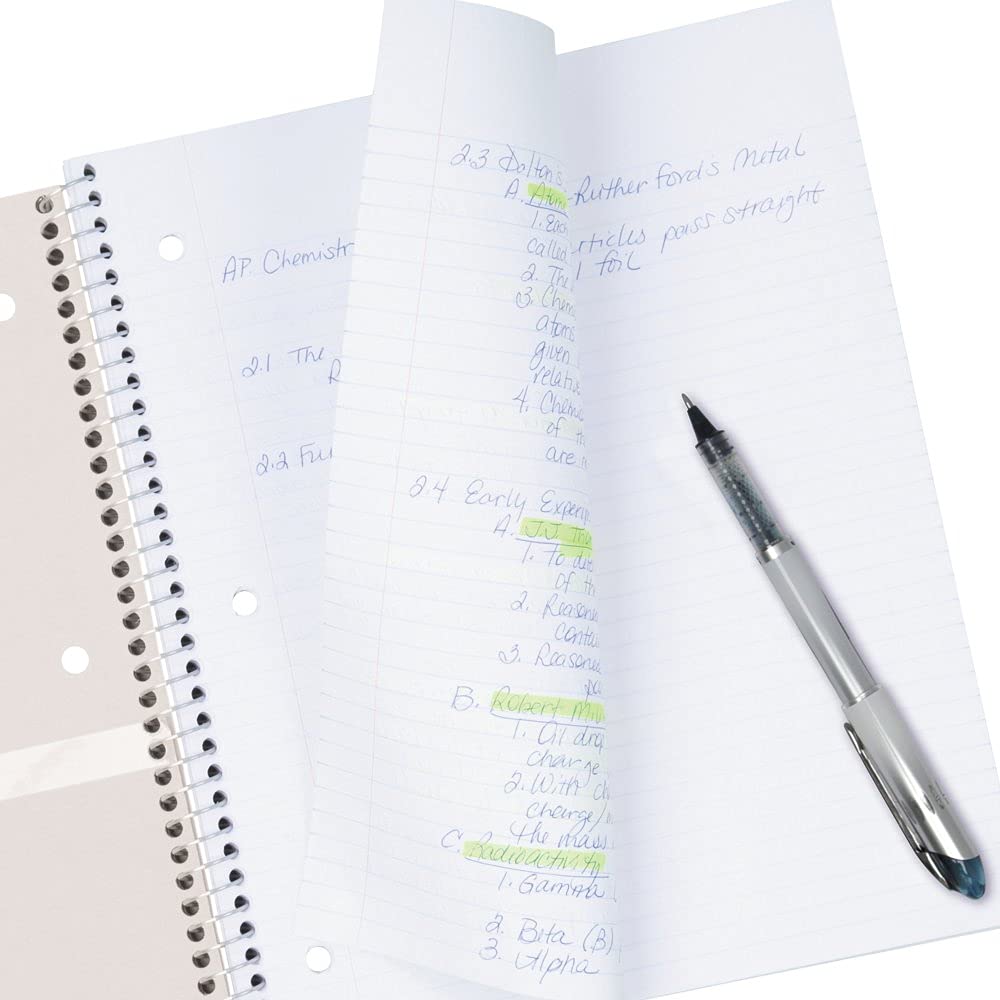 AP Chemistr
2.1 The
R
2.2 Fu
2.3 Dalton's
A. Atom
1. Each
called
2. The
3. Chem
atoms
given
relativ
4. Chemic
of th
are
2.4 Early Experim
A. J.J. Tho
1. To det
of th
2. Reasone
conta
3. Reasone
B. Robert Mill
1. Oil drop
charge
2. With ch
charge/
the mass
C. Radioactivity
1. Gamma
2. Beta (β)
3. Alpha
-Rutherford's Metal
rticles pass straight
foil